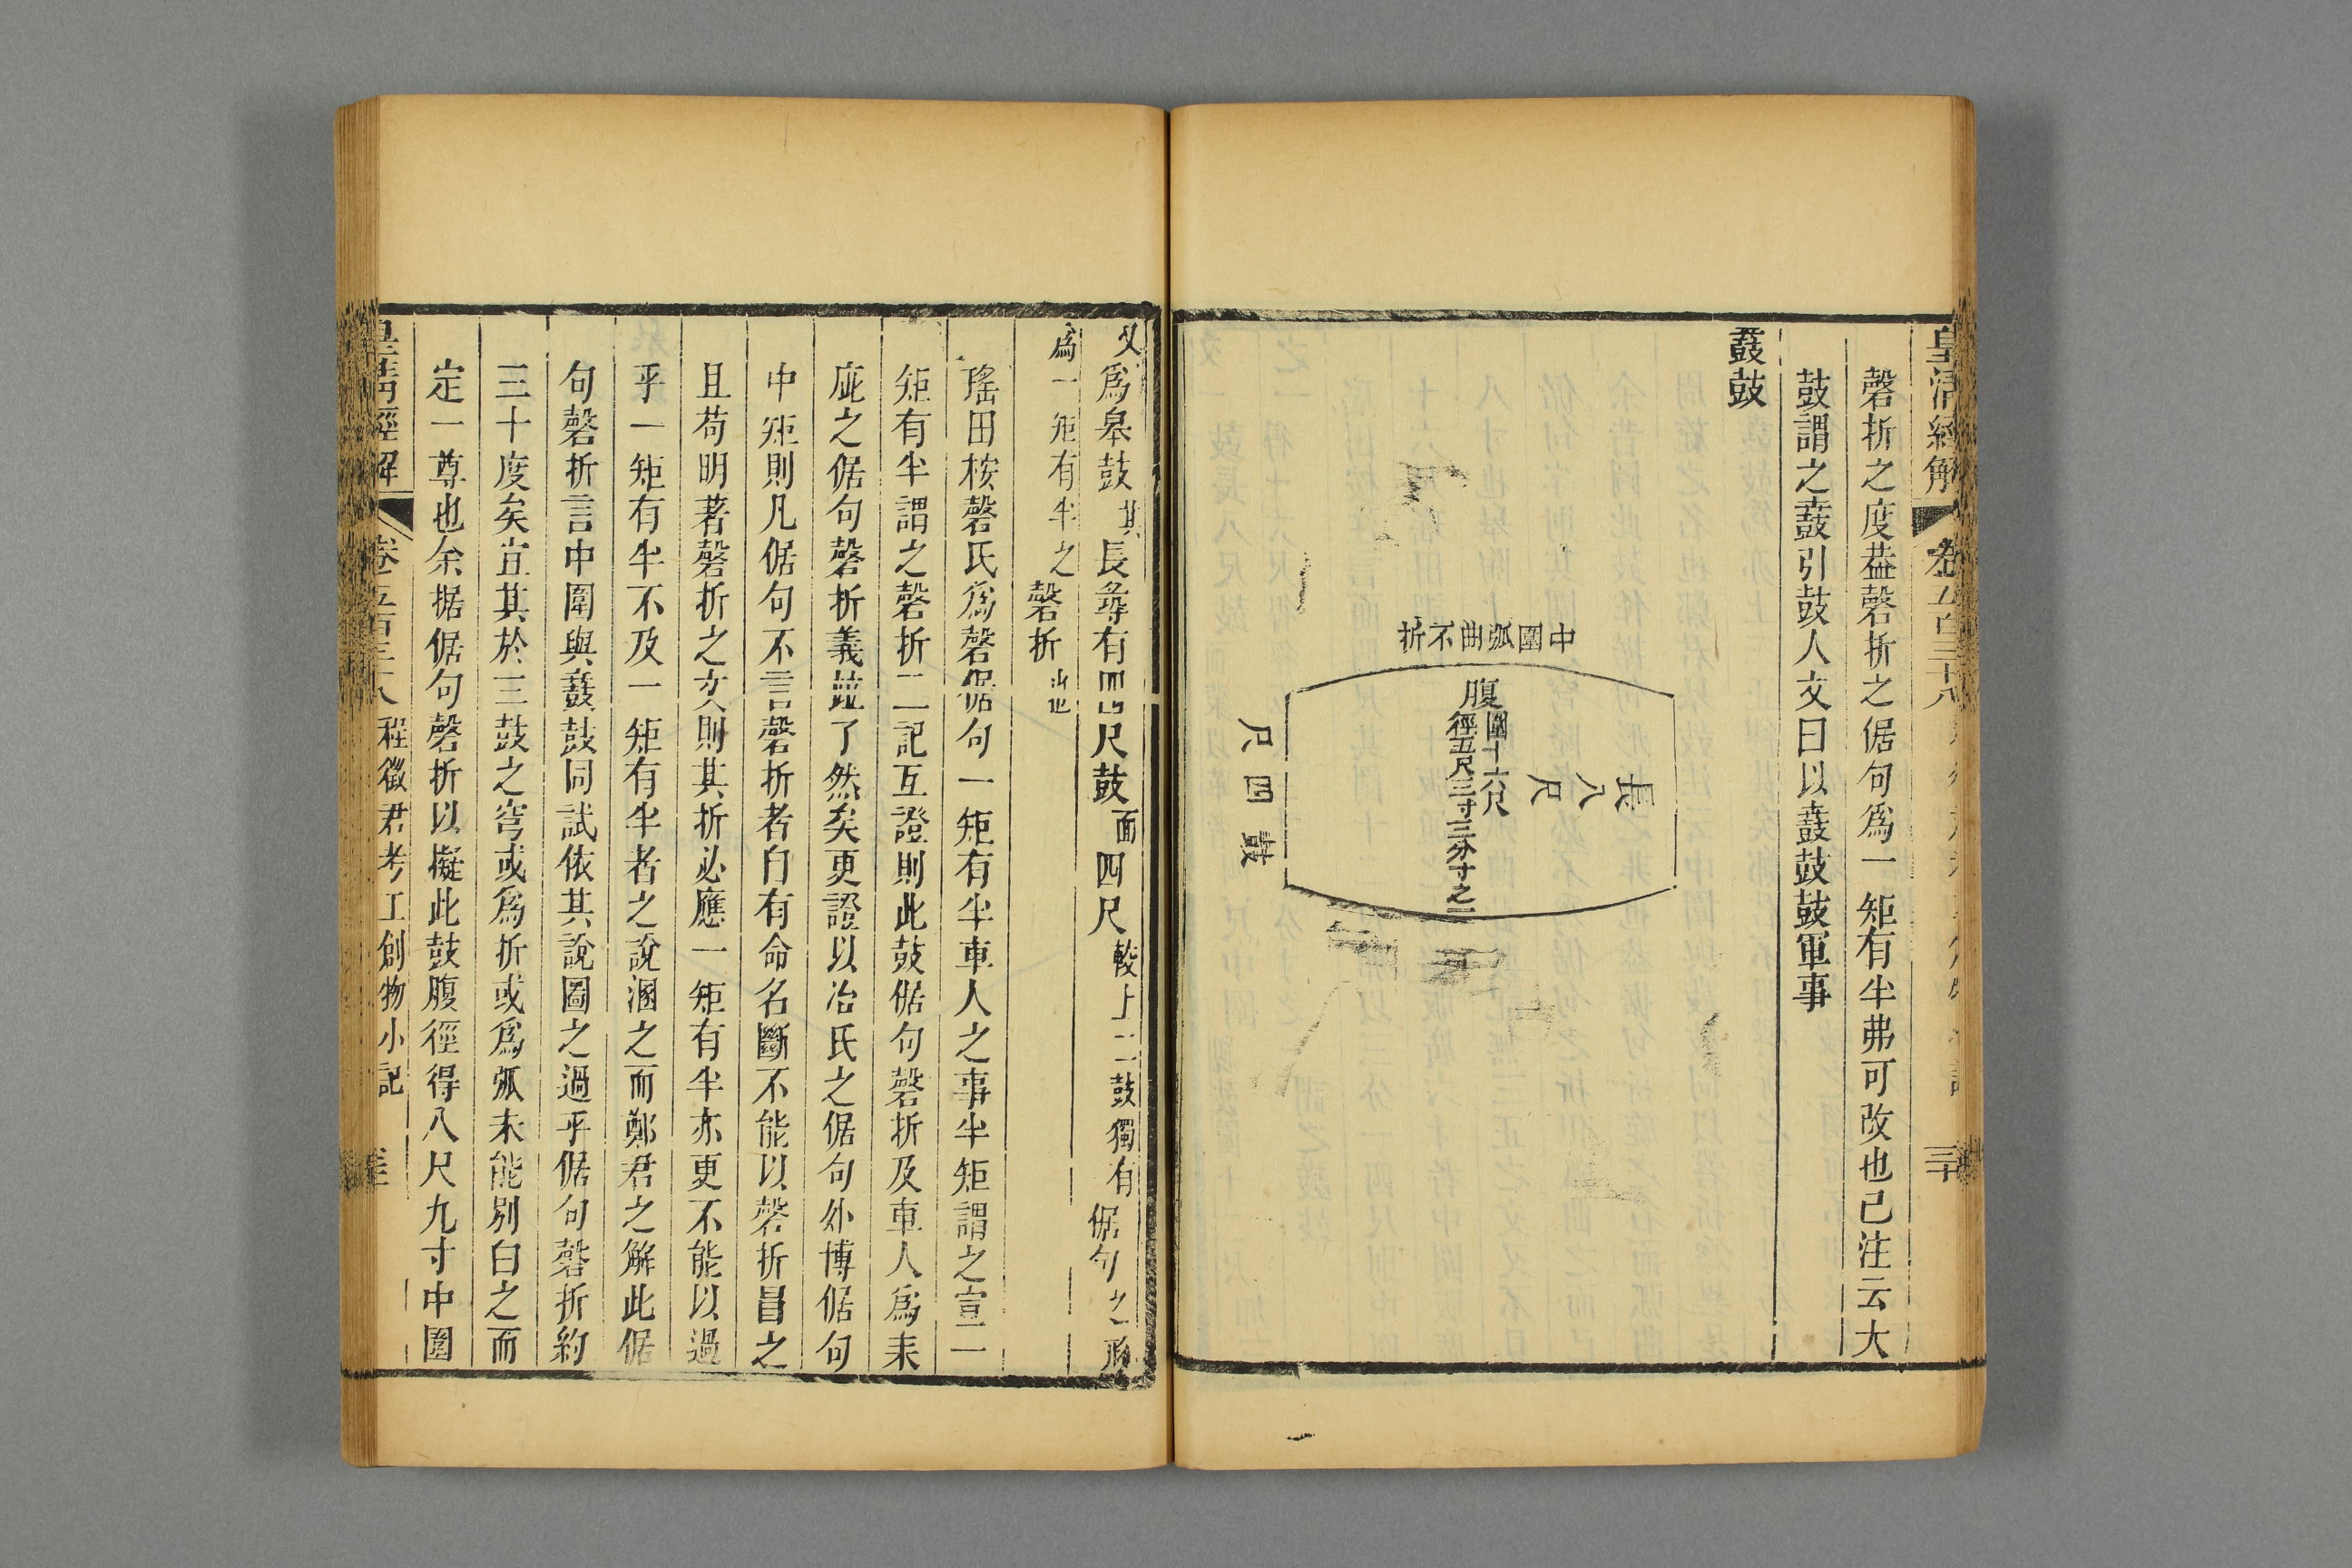 皇清經解
卷五百三十八
三十
磬折之度葢磬折之倨句爲一矩有半弗可改也己注云大
鼓謂之鼖引鼓人文曰以鼖鼓鼓軍事
鼖鼓
中圍弧曲不折
腹圍十六尺徑五尺三寸三分寸之一
長八尺
鼓四尺
又爲皋鼓其長尋有四尺鼓面四尺較上二鼓獨有倨句之形
爲一矩有半之磬折也
瑤田桉磬氏爲磬倨句一矩有半車人之事半矩謂之宣二
矩有半謂之磬折二記互證則此鼓倨句磬折及車人爲耒
庛之倨句磬折義竝了然矣更證以冶氏之倨句外博倨句
中矩則凡倨句不言磬折者自有命名斷不能以磬折冒之
且苟明著磬折之文則其折必應一矩有半亦更不能以過
乎一矩有半不及一矩有半者之說溷之而鄭君之解此倨
句磬折言中圍與鼖鼓同試依其說圖之過乎倨句磬折約
三十度矣宜其於三鼓之穹或爲折或爲弧未能別白之而
定一尊也余据倨句磬折以擬此鼓腹徑得八尺九寸中圍
皇清經解
卷五百三十八
程徵君考工創物小記